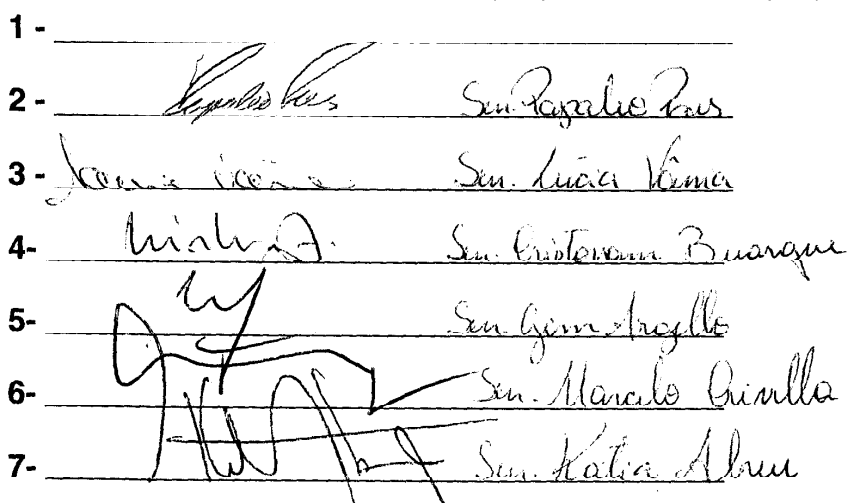 1 -
2 - Sen. Papaleo Paes
3 - Sen. Lúcia Vânia
4- Sen. Cristovam Buarque
5- Sen. Gim Argello
6- Sen. Marcelo Crivella
7- Sen. Katia Abreu